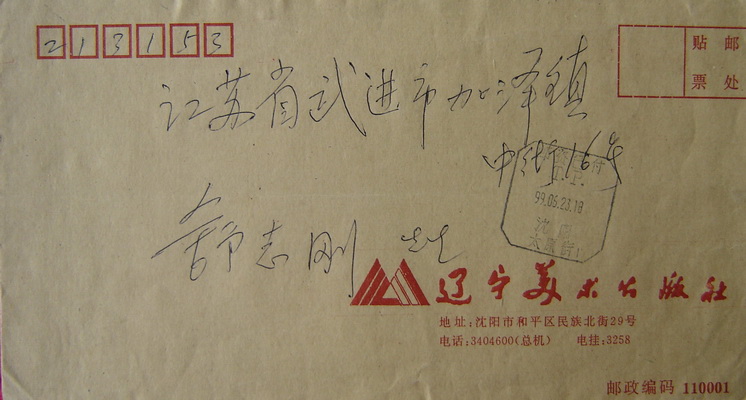 213153
贴 邮
票 处
江苏省武进市加泽镇
中街16号
99.06.23.18
沈阳
舒志刚 先生
辽宁美术出版社
地址:沈阳市和平区民族北街29号
电话:3404600(总机) 电挂:3258
邮政编码 110001